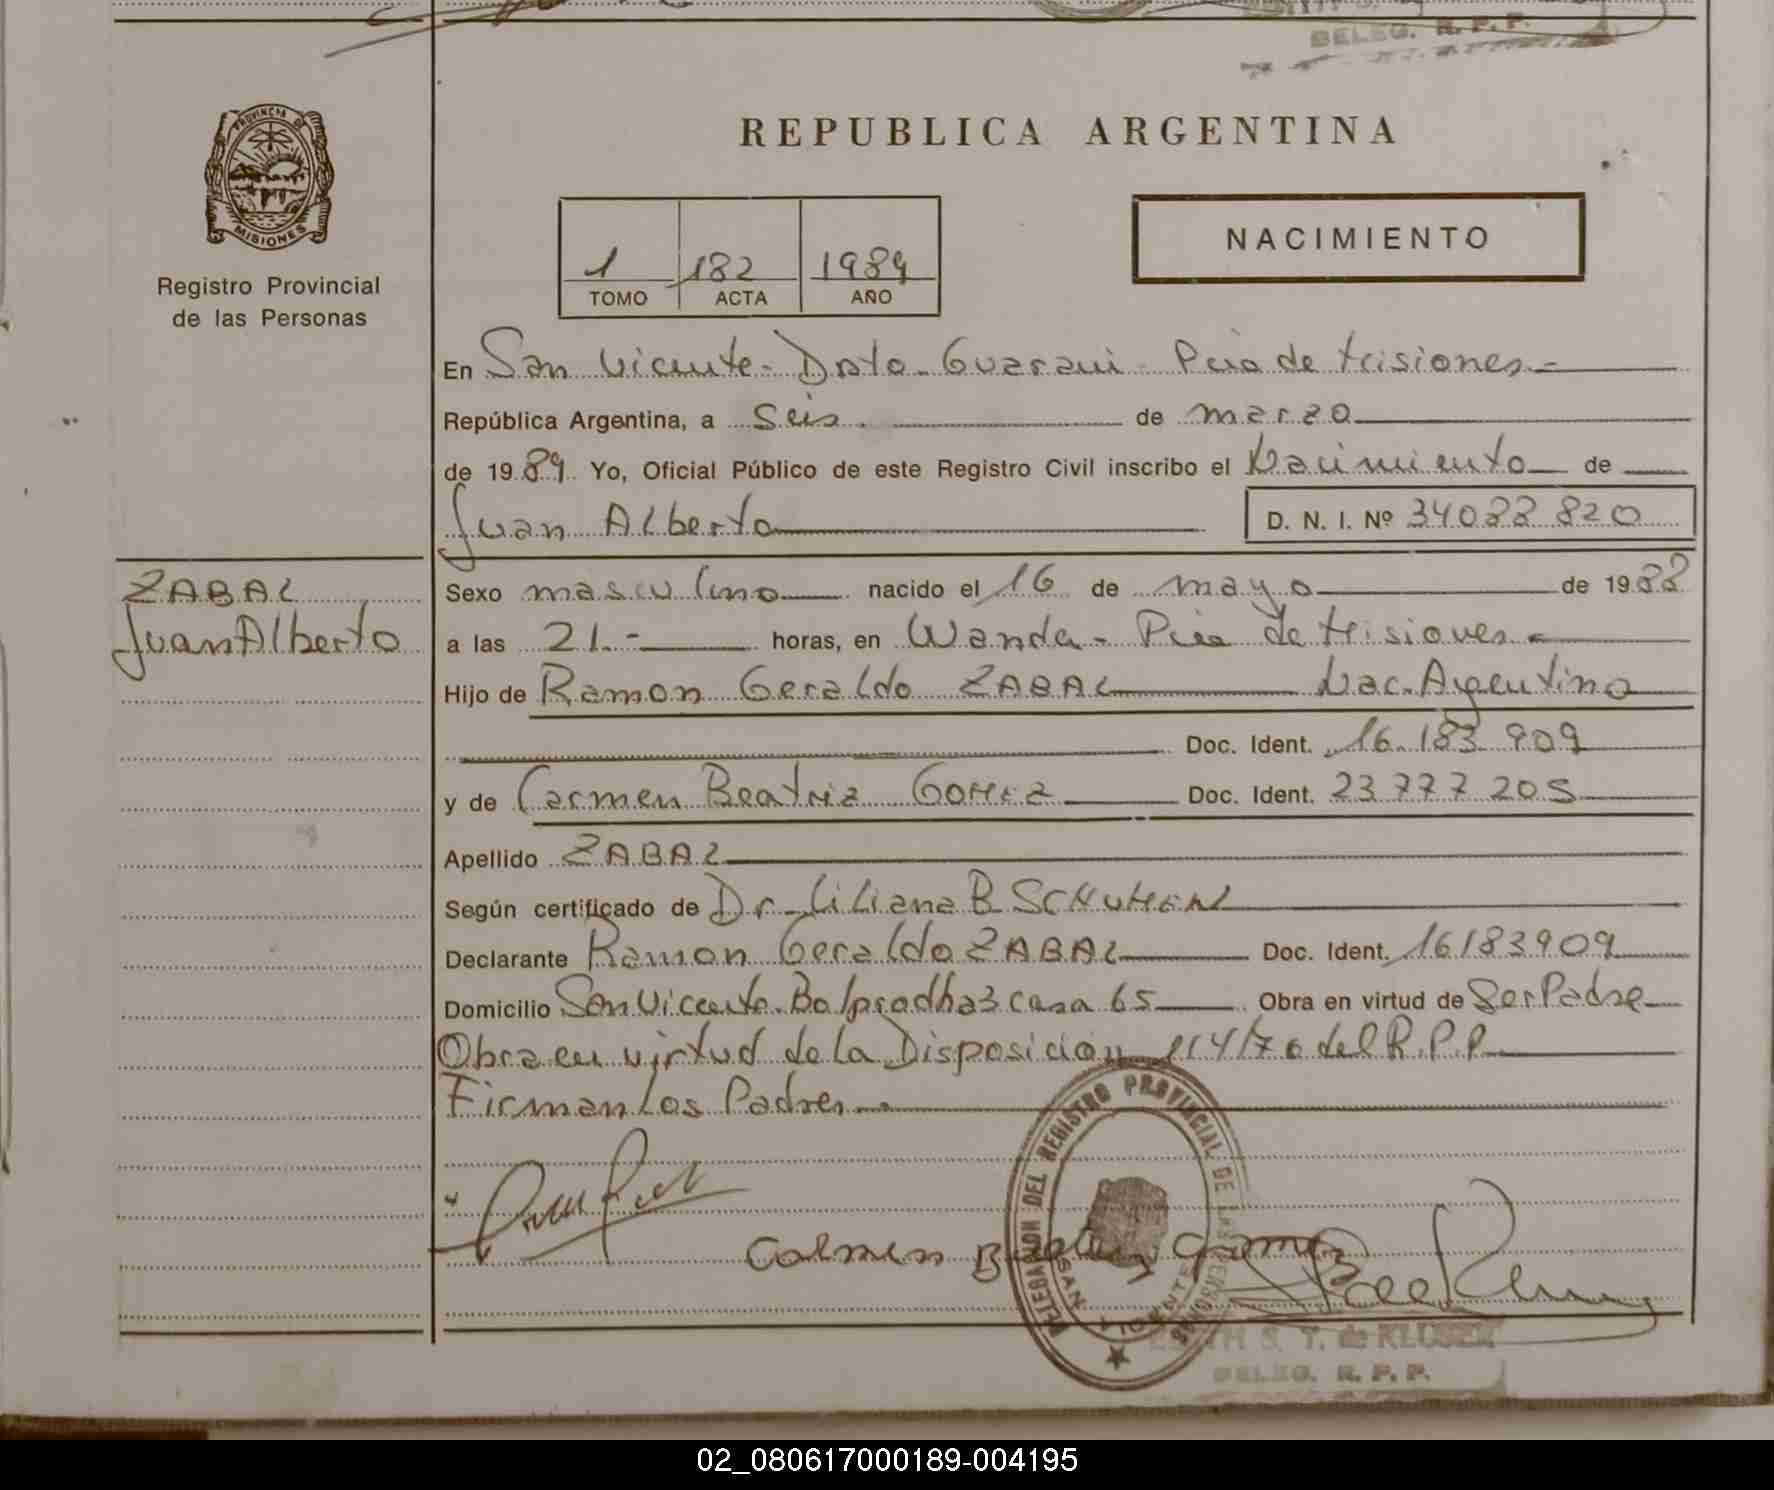 DELEG. R. P. P.
PROVINCIA DE
MISIONES
Registro Provincial
de las Personas
REPUBLICA ARGENTINA
1 182 1989
TOMO ACTA AÑO
NACIMIENTO
En San Vicente - Dpto. Guarani - Pcia de Misiones.-
República Argentina, a seis de marzo
de 1989. Yo, Oficial Público de este Registro Civil inscribo el Nacimiento de
Juan Alberto D. N. I. Nº 34088 820
ZABAL
Juan Alberto
Sexo masculino nacido el 16 de mayo de 1988
a las 21.- horas, en Wanda - Pcia de Misiones.-
Hijo de Ramon Geraldo ZABAL Nac. Argentino
Doc. Ident. 16.183 909
y de Carmen Beatriz GOMEZ Doc. Ident. 23 777 205
Apellido ZABAL
Según certificado de Dr. Liliana B
Declarante Ramon Geraldo ZABAL Doc. Ident. 16183909
Domicilio San Vicente. casa 65 Obra en virtud de Ser Padre
Obra en virtud de la Disposicion 114/76 del R.P.P
Firman los Padres.-
DELEGACION DEL REGISTRO PROVINCIAL DE LAS PERSONAS
SAN VICENTE
Carmen Beatriz Gomez
EDITH S. T. de KLUSER
DELEG. R. P. P.
02_080617000189-004195